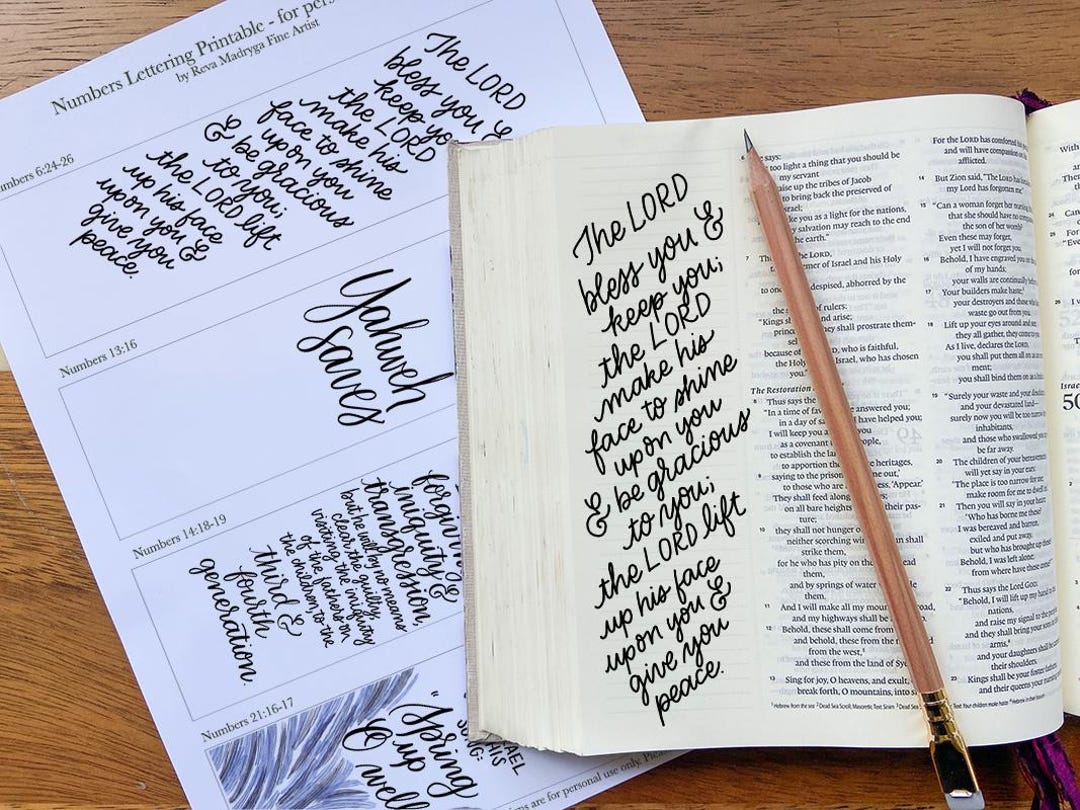 Numbers Lettering Printable - for
by Reva Madryga Fine Artist
6:24-26
The LORD
bless you &
keep
the LORD
make his
face to shine
upon you
& be gracious
to you;
the LORD lift
up his face
upon you &
give you
peace.
Numbers 13:16
Yahweh
saves
Numbers 14:18-19
forgiving
iniquity &
transgression,
but he will by no means
clear the guilty,
visiting the iniquity
of the fathers on
the children to the
third &
fourth
generation.
Numbers 21:16-17
"Spring
up
O well
are for personal use only.
The LORD
bless you &
keep you;
the LORD
make his
face to shine
upon you
& be gracious
to you;
the LORD lift
up his face
upon you &
give you
peace.
says:
too light a thing that you should be
my servant
up the tribes of Jacob
to bring back the preserved of
you as a light for the nations,
salvation may reach to the end
the earth."
7 the LORD,
of Israel and his Holy
to one despised, abhorred by the
of rulers:
"Kings and arise;
they shall prostrate them-
because of who is faithful,
the Holy Israel, who has chosen
you."
The Restoration
8 Thus says the
"In a time of answered you;
in a day of I have helped you;
I will keep you
as a covenant
to establish the
to apportion the heritages,
9 saying to the
to those who are 'Appear.'
They shall feed along
on all bare heights their pas-
ture;
10 they shall not hunger
neither scorching shall
strike them,
for he who has pity on
them,
and by springs of water
them.
11 And I will make all my road,
and my highways shall be
12 Behold, these shall come from
and behold, these from the
from the west,
and these from the land of
13 Sing for joy, O heavens, and exult,
break forth, O mountains, into
For the LORD has comforted his
and will have compassion on
afflicted.
14 But Zion said, "The LORD has
my Lord has forgotten me."
15 "Can a woman forget her nursing
that she should have no
the son of her womb?
Even these may forget,
yet I will not forget you.
16 Behold, I have engraved you on
of my hands;
your walls are continually
17 Your builders make haste;
your destroyers and those who
waste go out from you.
18 Lift up your eyes around and
they all gather, they come to
As I live, declares the LORD,
you shall put them all on as
ment;
you shall bind them on as
19 "Surely your waste and your
and your devastated land—
surely now you will be too narrow
inhabitants,
and those who swallowed you
be far away.
20 The children of your bereavement
will yet say in your ears:
'The place is too narrow for me;
make room for me to dwell
21 Then you will say in your heart:
'Who has borne me these?
I was bereaved and barren,
exiled and put away,
but who has brought up these?
Behold, I was left alone;
from where have these come?'"
22 Thus says the Lord GOD:
"Behold, I will lift up my hand to
nations,
and raise my signal to the
and they shall bring your sons in
arms,
and your daughters shall be
their shoulders.
23 Kings shall be your foster fathers,
and their queens your nursing